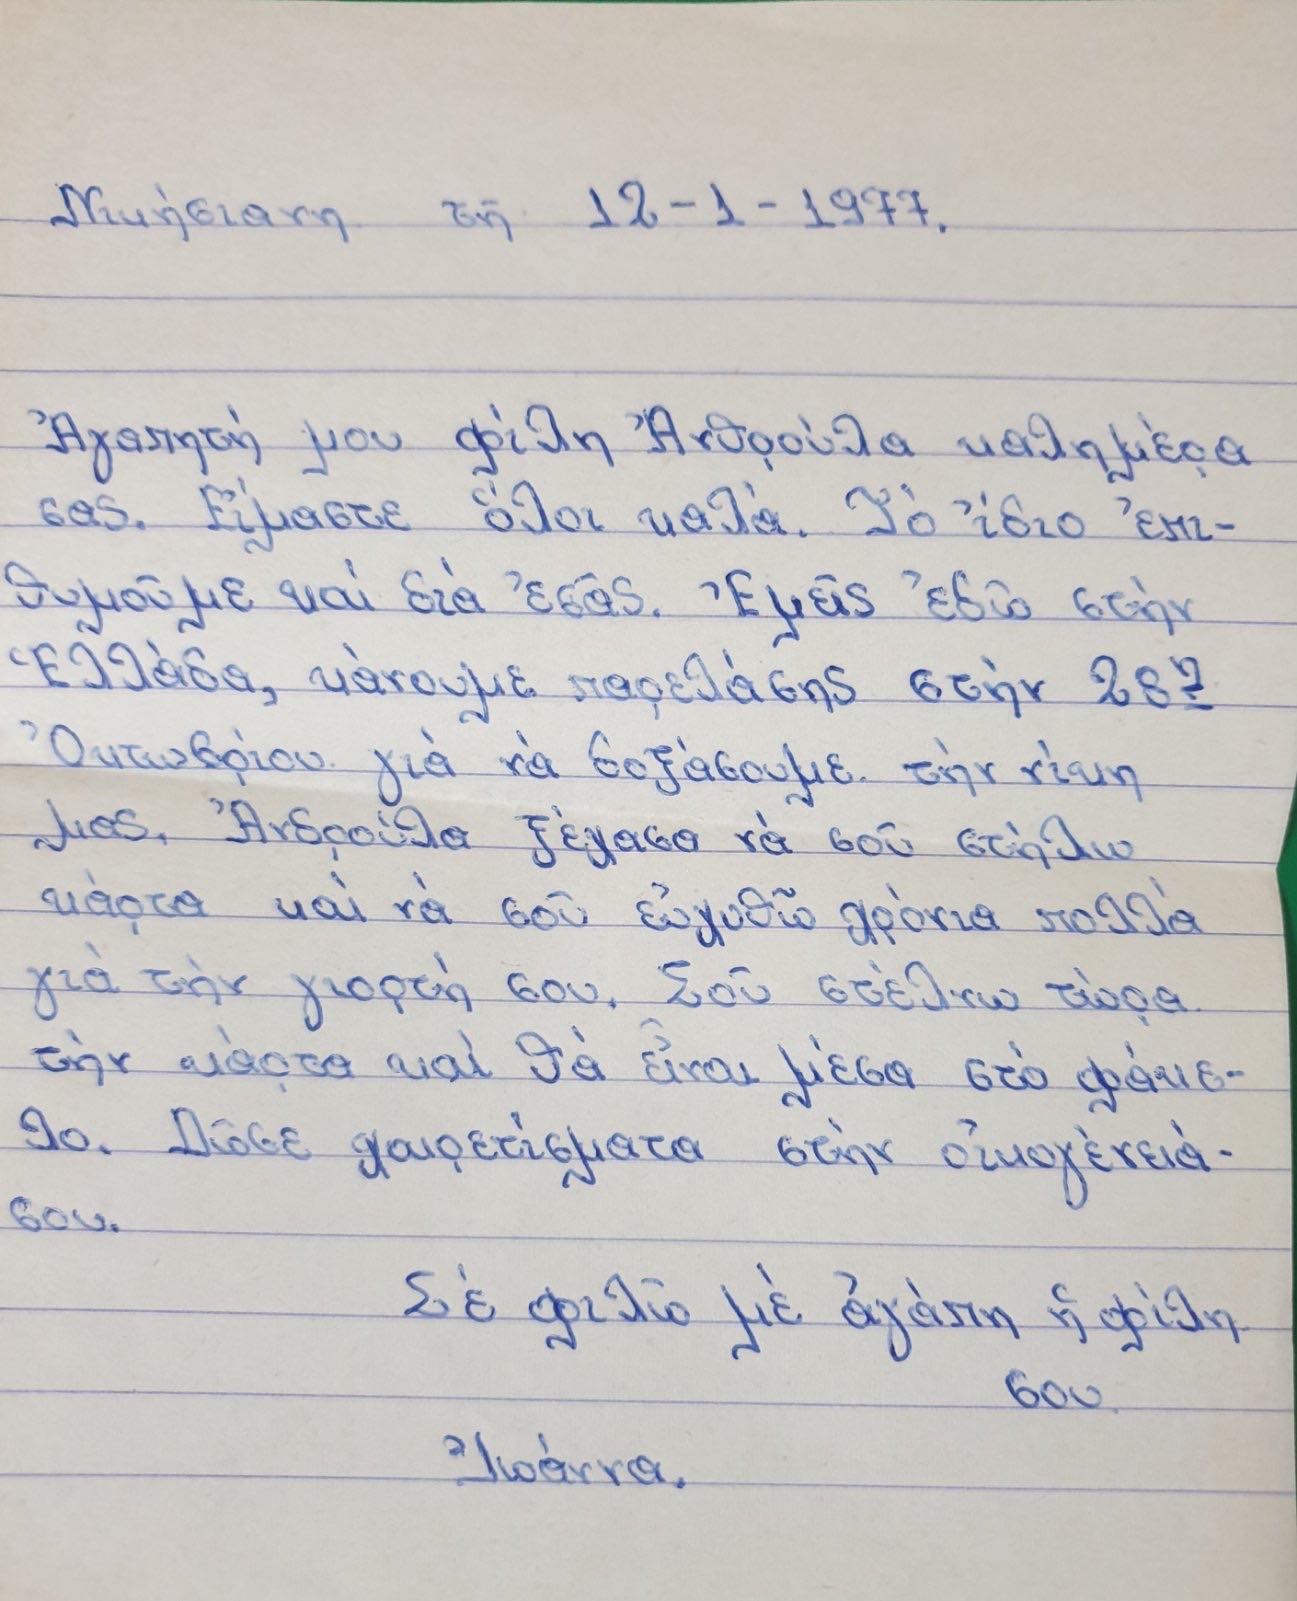 Νικήσιανη τῇ 12-1-1977.
Ἀγαπητή μου φίλη Ἀνδρούλα καλημέρα
σας. Εἴμαστε ὅλοι καλά. Τό ἴδιο ἐπι-
θυμοῦμε καί διά ἐσᾶς. Ἐμεῖς ἐδῶ στήν
Ἑλλάδα, κάνουμε παρελάσης στήν 28η
Ὀκτωβρίου γιά νά δοξάσουμε τήν νίκη
μας. Ἀνδρούλα ξέχασα νά σοῦ στήλω
κάρτα καί νά σοῦ εὐχυθῶ χρόνια πολλά
γιά τήν γιορτή σου. Σοῦ στέλνω τώρα
τήν κάρτα καί θά εἶναι μέσα στό φάκε-
λο. Δῶσε χαιρετίσματα στήν οἰκογένειά-
σου.
Σέ φιλῶ μέ ἀγάπη ἡ φίλη
σου
Ἰωάννα.